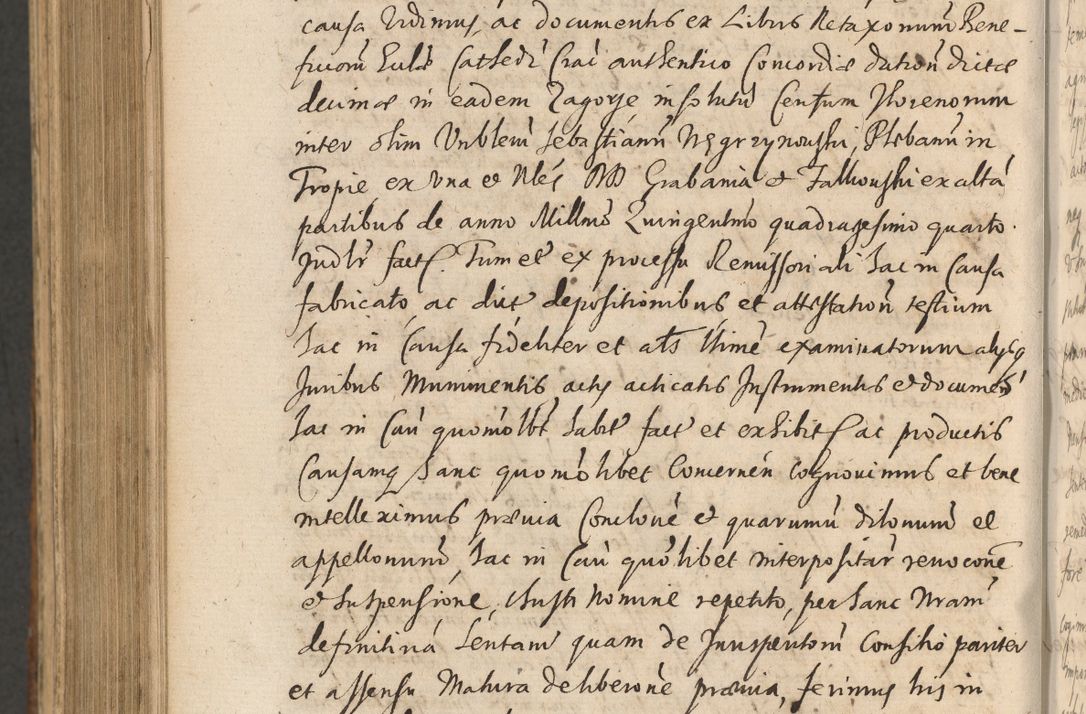 causa vidimus, ac documentis ex Libris Retaxonum Bene-
ficiorum Eulae Cathedr Crac authentico Concordiae dation dictae
decimae in eadem Zagorze in solutum Centum Florenorum
inter olim Vnblem Sebastianum Plebanum in
Tropie ex vna et Nles DD Grabania et Falkouski ex alta
partibus de anno Millmo Quingentmo quadragesimo quarto.
Judlr fact. Tum et ex processu Remissoriali hac in Causa
fabricato, ac dict depositionibus et attestation testium
hac in Causa fideliter et als ltime examinatorum alysq
Juribus Munimentis actis acticatis Instrumentis et documen
hac in Cau quomolbt habit fact et exhibit ac productis
Causamq hanc quomolibet Concernen Cognouimus et bene
intelleximus praeuia Conclone et quarumu dilonum et
appellonum, hac in Cau quolibet interpositar reuocone
et Suspensione, Chusti Nomine repetito, per hanc Nram
definitiua Sentam quam de Jurisperitorum Consilio pariter
et assensu Matura deliberone praeuia, ferimus his in